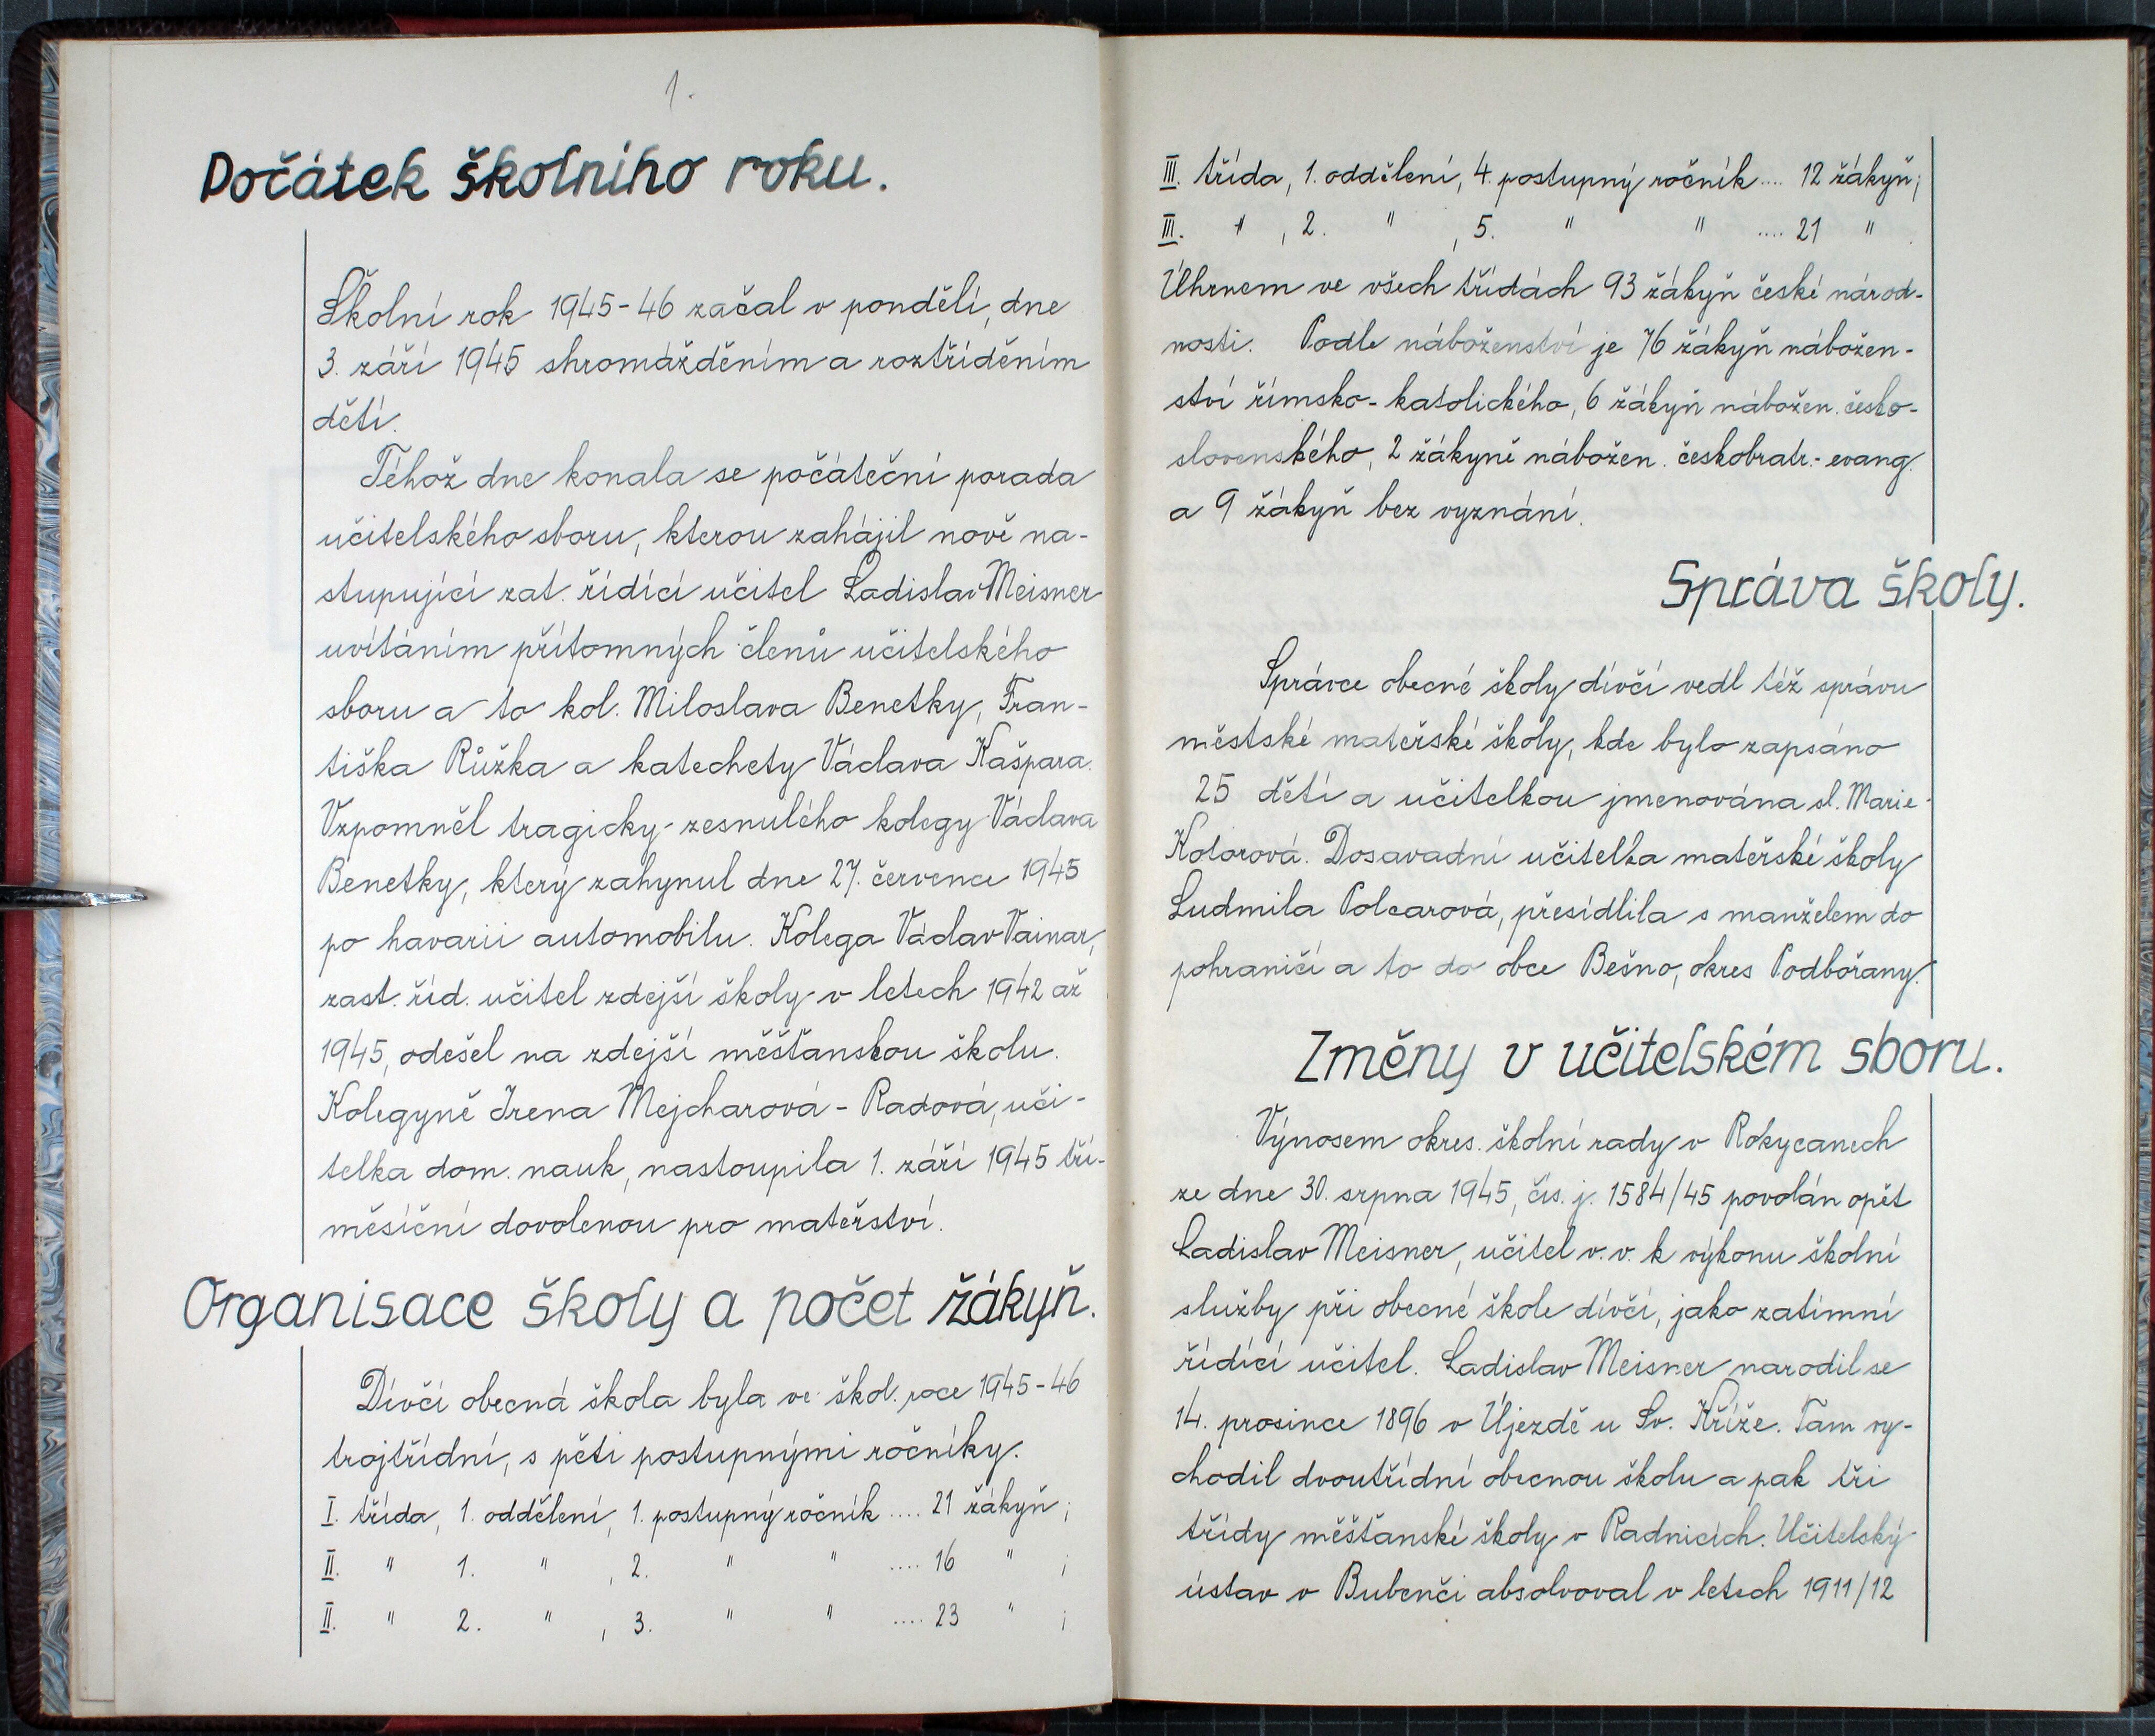 1.
Počátek školního roku.
Školní rok 1945-46 začal v pondělí, dne
3. září 1945 shromážděním a roztříděním
dětí.
Téhož dne konala se počáteční porada
učitelského sboru, kterou zahájil nově na-
stupující zat. řídící učitel Ladislav Meisner
uvítáním přítomných členů učitelského
sboru a to kol. Miloslava Benetky, Fran-
tiška Růžka a katechety Václava Kašpara.
Vzpomněl tragicky zesnulého kolegy Václava
Benetky, který zahynul dne 27. července 1945
po havarii automobilu. Kolega Václav Vainar,
zast. říd. učitel zdejší školy v letech 1942 až
1945, odešel na zdejší měšťanskou školu.
Kolegyně Irena Mejcharová - Radová, uči-
telka dom. nauk, nastoupila 1. září 1945 tří-
měsíční dovolenou pro mateřství.
Organisace školy a počet žákyň.
Dívčí obecná škola byla ve škol. roce 1945-46
trojtřídní, s pěti postupnými ročníky.
I. třída, 1. oddělení, 1. postupný ročník .... 21 žákyň ;
II. " 1. " , 2. " " .... 16 " ;
II. " 2. " , 3. " " .... 23 " ;
III. třída, 1. oddělení, 4. postupný ročník .... 12 žákyň;
III. " , 2. " , 5. " " .... 21 " .
Úhrnem ve všech třídách 93 žákyň české národ-
nosti. Podle náboženství je 76 žákyň nábožen-
ství římsko-katolického, 6 žákyň nábožen. česko-
slovenského, 2 žákyně nábožen. českobratr.-evang.
a 9 žákyň bez vyznání.
Správa školy.
Správce obecné školy dívčí vedl též správu
městské mateřské školy, kde bylo zapsáno
25 dětí a učitelkou jmenována sl. Marie
Kotorová. Dosavadní učitelka mateřské školy
Ludmila Polcarová, přesídlila s manželem do
pohraničí a to do obce Bešno, okres Podbořany.
Změny v učitelském sboru.
Výnosem okres. školní rady v Rokycanech
ze dne 30. srpna 1945, čís. j. 1584/45 povolán opět
Ladislav Meisner, učitel v. v. k výkonu školní
služby při obecné škole dívčí, jako zatímní
řídící učitel. Ladislav Meisner narodil se
14. prosince 1896 v Újezdě u Sv. Kříže. Tam vy-
chodil dvoutřídní obecnou školu a pak tři
třídy měšťanské školy v Radnicích. Učitelský
ústav v Bubenči absolvoval v letech 1911/12